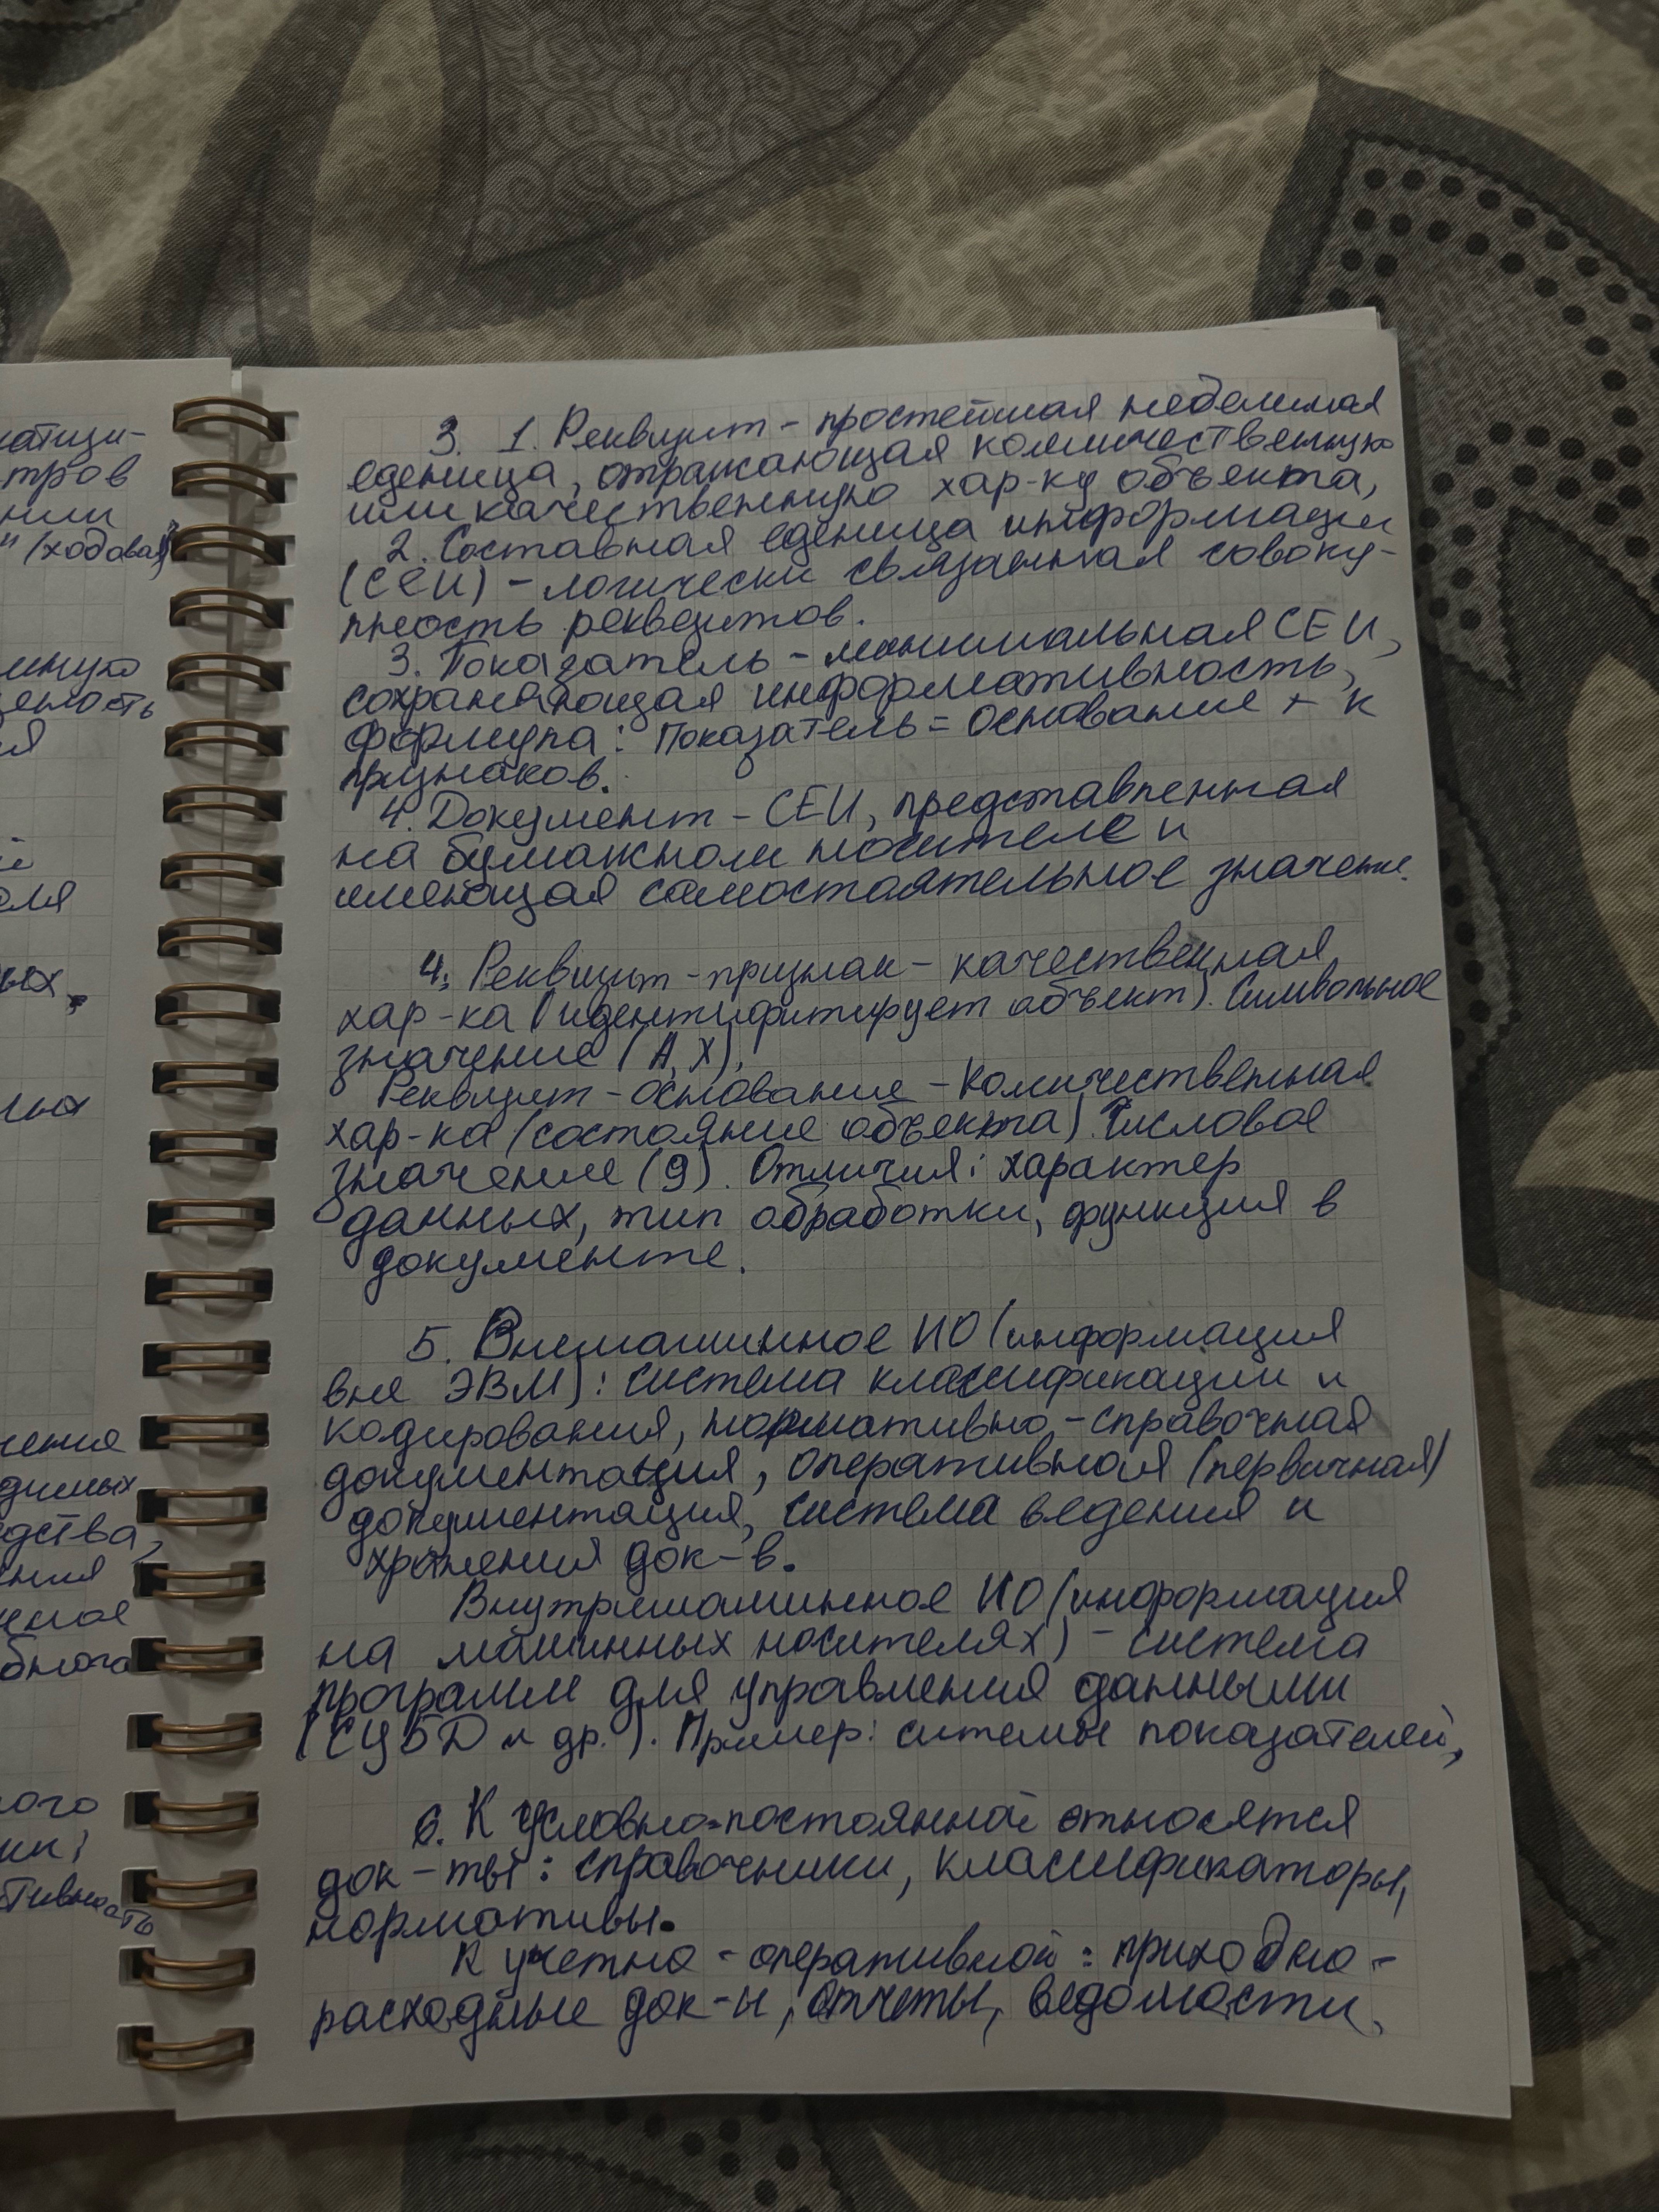 катизи-
тров
нии
" (ходовая)
ых,
ния
дства,
ного
тивность
3. 1. Реквизит - простейшая неделимая
еденица, отражающая колличественную
или качественную хар-ку объекта,
2. Составная еденица информации
(СЕИ) - логически связанная совоку-
пность реквезитов.
3. Показатель - минимальная СЕИ,
сохраняющая информативность,
формула: Показатель = основание + к
признаков.
4. Документ - СЕИ, представленная
на бумажном носителе и
имеющая самостоятельное значение.
4. Реквизит-признак - качественная
хар-ка (идентифитирует объект). Символьное
значение (А, Х).
Реквизит-основание - количественная
хар-ка (состояние объекта). Числовое
значение (9). Отличия: характер
данных, тип обработки, функция в
документе.
5. Внемашинное ИО (информация
вне ЭВМ): система классификации и
кодирования, нормативно-справочная
документация, оперативная (первичная)
документация, система ведения и
хранения док-в.
Внутримашинное ИО (информация
на машинных носителях) - система
программ для управления данными
(СУБД и др.). Пример: ситемы показателей,
6. К условно-постоянной относятся
док-ты: справочники, классификаторы,
нормативы.
К учетно-оперативной: приходно-
расходные док-ы, отчеты, ведомости.